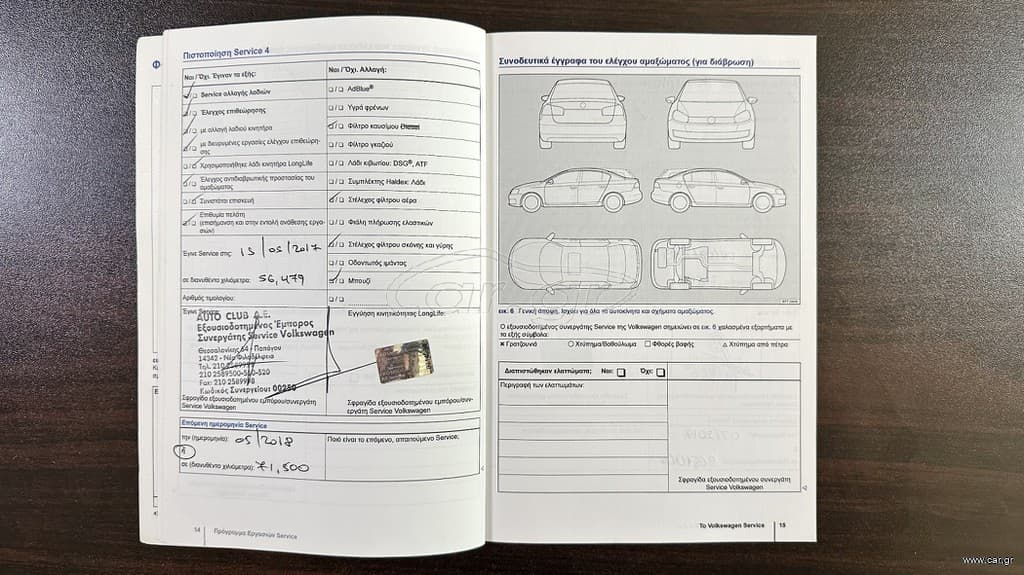 Πιστοποίηση Service 4
Ναι / Όχι. Έγιναν τα εξής:
Service αλλαγής λαδιών
Έλεγχος επιθεώρησης
με αλλαγή λαδιού κινητήρα
με διευρυμένες εργασίες ελέγχου επιθεώρη-
σης
Χρησιμοποιήθηκε λάδι κινητήρα LongLife
Έλεγχος αντιδιαβρωτικής προστασίας του
αμαξώματος
Συνιστάται επισκευή
Επιθυμία πελάτη
(επισήμανση και στην εντολή ανάθεσης εργα-
σιών)
Έγινε Service στις: 15/05/2017
σε διανυθέντα χιλιόμετρα: 56,479
Αριθμός τιμολογίου:
Έγινε Service:
AUTO CLUB A.E.
Εξουσιοδοτημένος Έμπορος
Συνεργάτης Service Volkswagen
Θεσσαλονίκης 64 - Παπάγου
14342 - Νέα Φιλαδέλφεια
210 2589500-510-520
Fax: 210 2589998
Κωδικός Συνεργείου: 00250
Σφραγίδα εξουσιοδοτημένου εμπόρου/συνεργάτη
Service Volkswagen
Ναι / Όχι. Αλλαγή:
AdBlue®
Υγρά φρένων
Φίλτρο καυσίμου Diesel
Φίλτρο γκαζιού
Λάδι κιβωτίου: DSG®, ATF
Συμπλέκτης Haldex: Λάδι
Στέλεχος φίλτρου αέρα
Φιάλη πλήρωσης ελαστικών
Στέλεχος φίλτρου σκόνης και γύρης
Οδοντωτός ιμάντας
Μπουζί
Εγγύηση κινητικότητας LongLife:
Σφραγίδα εξουσιοδοτημένου εμπόρου/συν-
εργάτη Service Volkswagen
Επόμενη ημερομηνία Service
την (ημερομηνία): 05/2018
ή
σε (διανυθέντα χιλιόμετρα): 71,500
Ποιό είναι το επόμενο, απαιτούμενο Service;
14 Πρόγραμμα Εργασιών Service
Συνοδευτικά έγγραφα του ελέγχου αμαξώματος (για διάβρωση)
εικ. 6 Γενική άποψη. Ισχύει για όλα τα αυτοκίνητα και σχήματα αμαξώματος.
Ο εξουσιοδοτημένος συνεργάτης Service της Volkswagen σημειώνει σε εικ. 6 χαλασμένα εξαρτήματα με
τα εξής σύμβολα:
Γρατζουνιά Χτύπημα/Βαθούλωμα Φθορές βαφής Χτύπημα από πέτρα
Διαπιστώθηκαν ελαττώματα; Ναι: Όχι:
Περιγραφή των ελαττωμάτων:
Σφραγίδα εξουσιοδοτημένου συνεργάτη
Service Volkswagen
Το Volkswagen Service 15
car.gr
www.car.gr